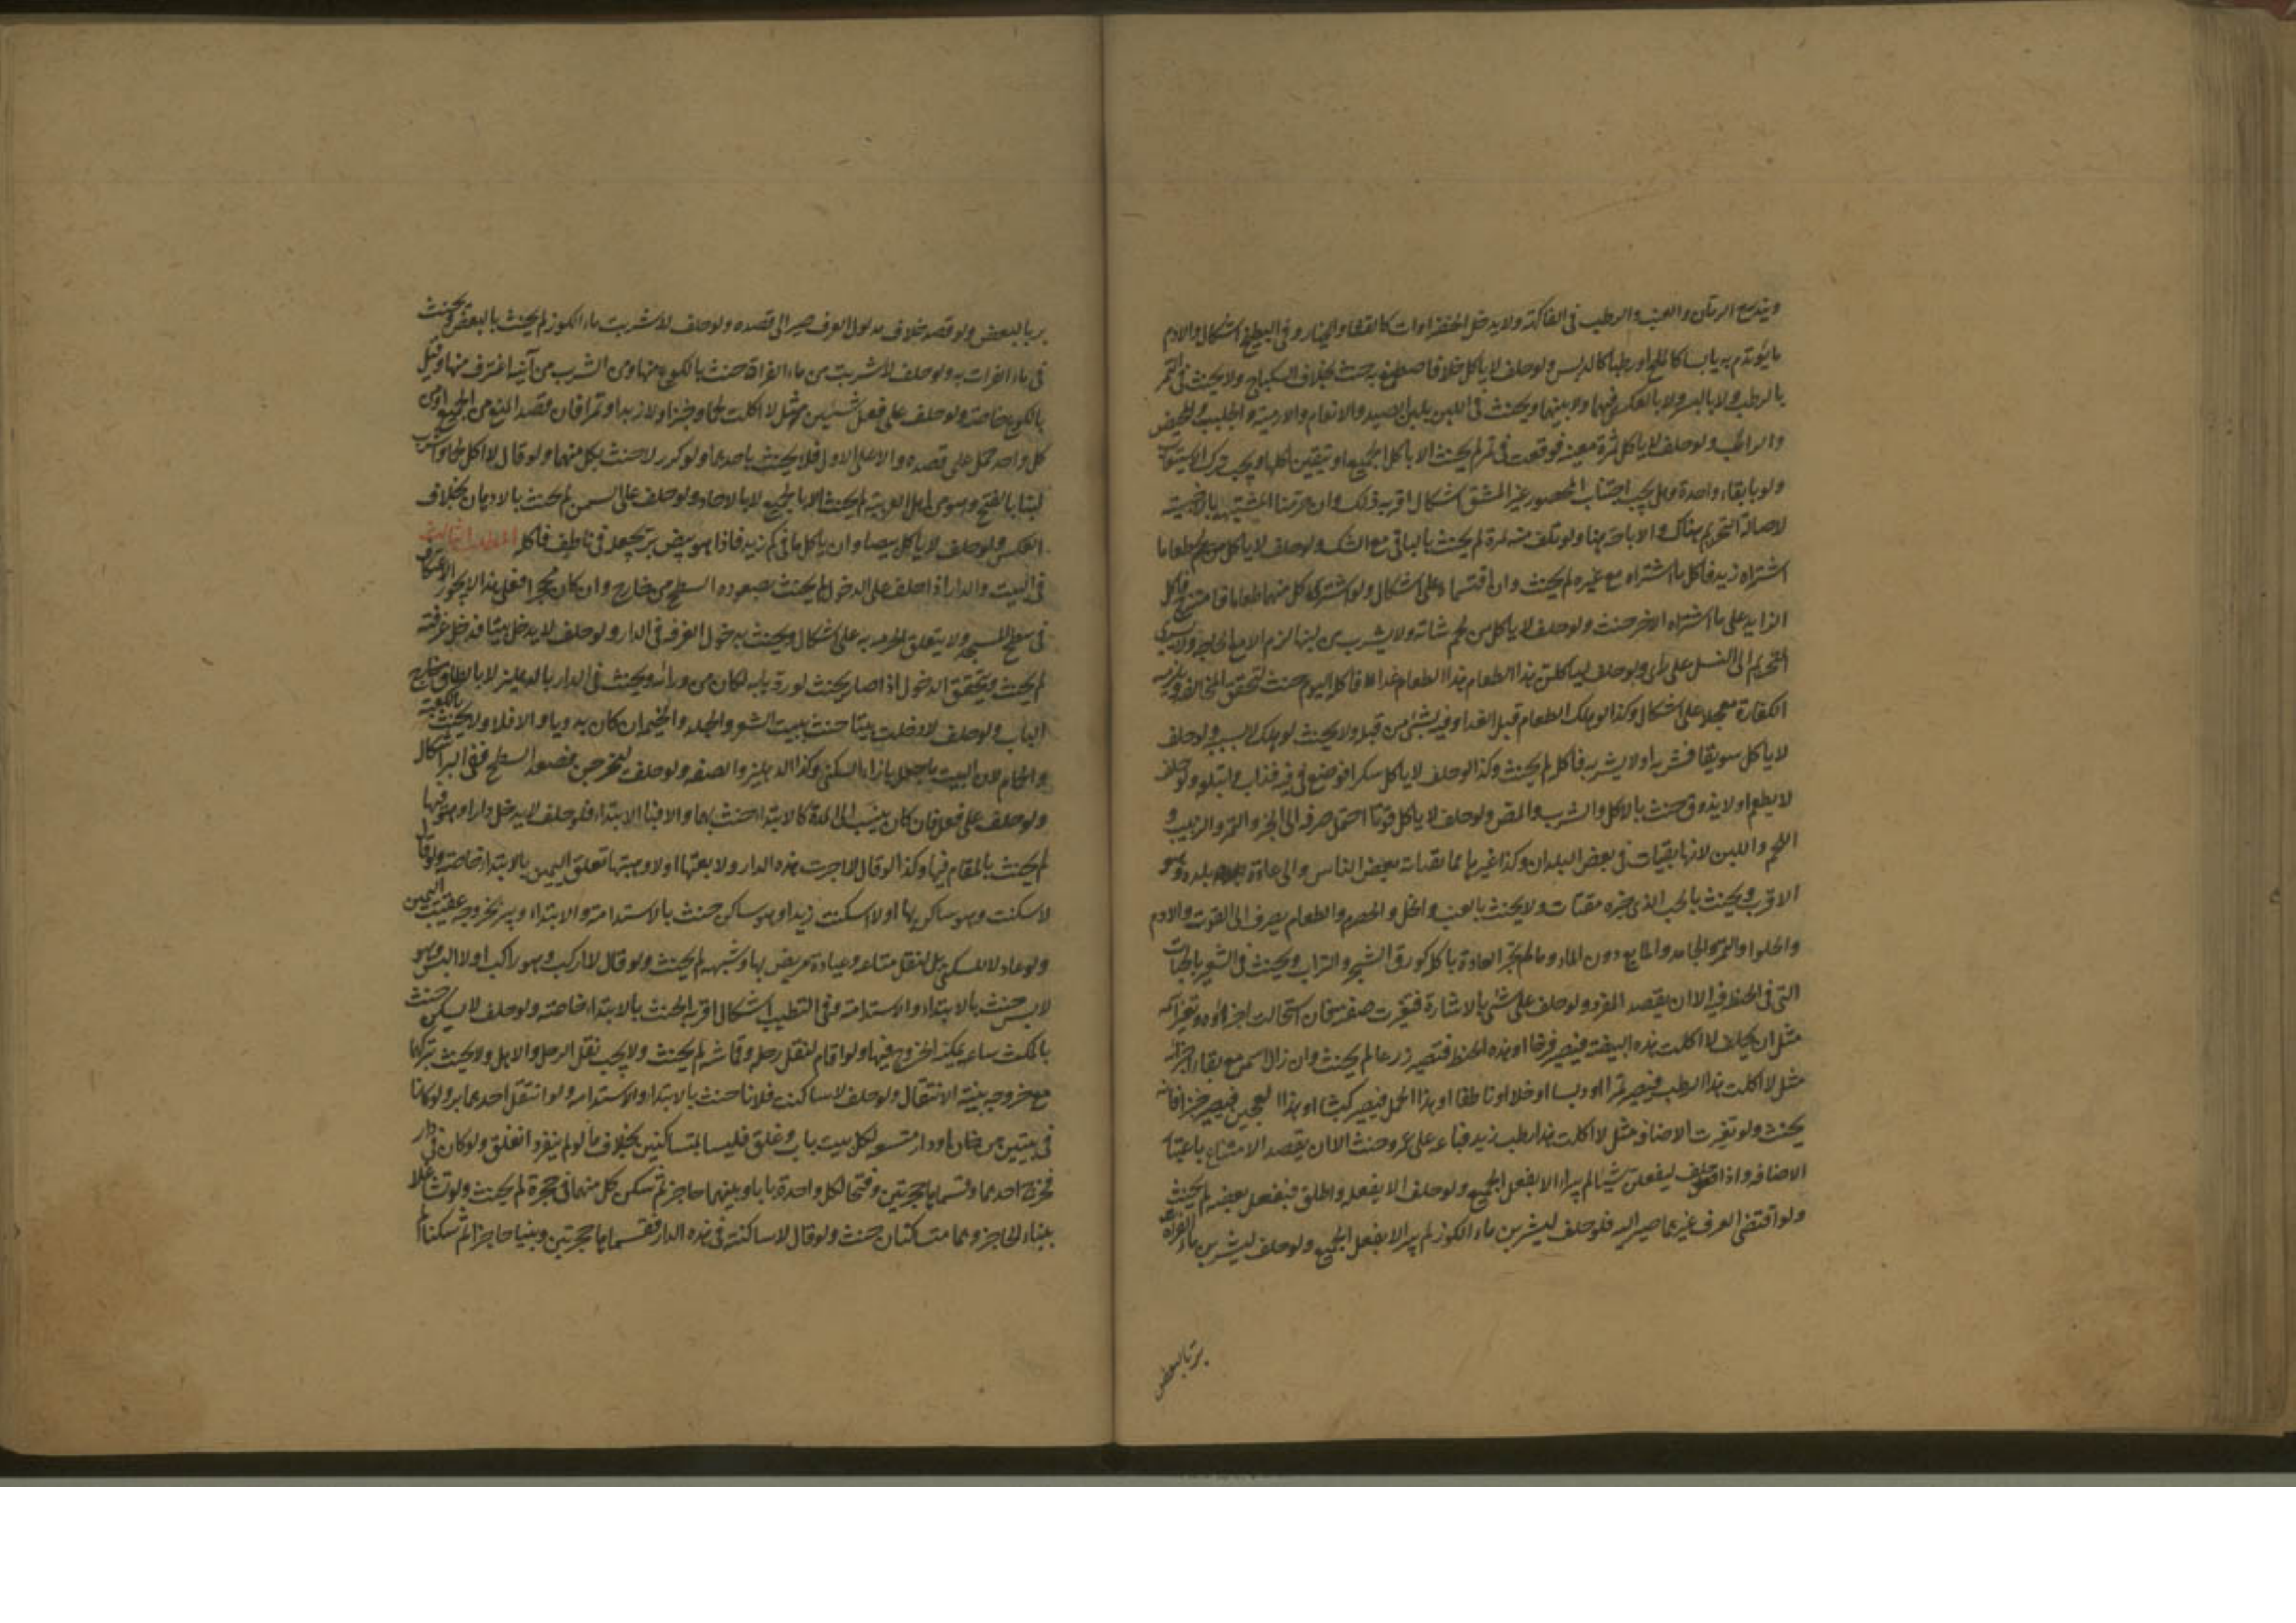 ويندرج الرمان والعنب والرطب في الفاكهة ولا يدخل الخضراوات كالقثاء والخيار وفي البطيخ اشكال والادم
ما يؤتدم به يابسا كالملح او رطبا كالدبس ولو حلف لا ياكل خلا فاصطبغ به حنث بخلاف السكباج ولا يحنث في التمر
بالرطب ولا بالبسر ولا بالعكس فيهما ولا بينهما ويحنث في اللبن بلبن الصيد والانعام والادمية والحليب والمخيض
والرائب ولو حلف لا ياكل ثمرة معينة فوقعت في تمر لم يحنث الا باكل الجميع او تيقين اكلها ويجب ترك الاستيعاب
ولو بابقاء واحدة وهل يجب اجتناب المحصور غير المشق اشكال اقربه ذلك وان حرمنا المشتبه بالاجنبية
لاصالة التحريم هناك والاباحة هنا ولو تلف منه ثمرة لم يحنث بالباقي مع الشك ولو حلف لا ياكل طعاما
اشتراه زيد فاكل ما اشتراه مع غيره لم يحنث وان اقتسماه على اشكال ولو اشترى كل منهما طعاما فامتزج فاكل
الزايد على ما اشتراه الاخر حنث ولو حلف لا ياكل من لحم شاته ولا يشرب من لبنها لزم الا مع الحاجة ولا يسري
التحريم الى النسل على راى ولو حلف لياكلن هذا الطعام غدا فاكله اليوم حنث لتحقق المخالفة ويلزمه
الكفارة معجلا على اشكال وكذا لو هلك الطعام قبل الغد او فيه بشئ من قبله ولا يحنث لو هلك لا بسببه ولو حلف
لا ياكل سويقا فشربه او لا يشربه فاكله لم يحنث وكذا لو حلف لا ياكل سكرا فوضع في فيه فذاب وابتلعه ولو حلف
لا يطعم او لا يذوق حنث بالاكل والشرب والمص ولو حلف لا ياكل قوتا احتمل صرفه الى الخبز والتمر والزبيب و
اللحم واللبن لانها يقتات في بعض البلدان وكذا غيرها مما يقتاته بعض الناس والى عادة بلده وهو
الاقرب ويحنث بالحب الذي خبزه مقتات ولا يحنث بالعنب والخل والحصرم والطعام يصرف الى القوت والادم
والحلوا والتمر والجامد والمايع دون الماء وما لم يجر العادة باكله كورق الشجر والتراب ويحنث في الشعير بالحبات
التي في الحنطة الا ان يقصد المفرد ولو حلف على شئ بالاشارة فتغيرت صفته فان استحالت اجزاؤه وتغير اسمه
مثل ان يحلف لا اكلت هذه البيضة فيصير فرخا او هذه الحنطة فتصير زرعا لم يحنث وان زال اسمه مع بقاء اجزائه
مثل لا اكلت هذا الرطب فيصير تمرا او دبسا او خلا او ناطفا او هذا الحمل فيصير كبشا او هذا العجين فيصير خبزا فانه
يحنث ولو تغيرت الاضافة مثل لا اكلت هذا رطب زيد فباعه على عمرو حنث الا ان يقصد الامتناع باعتبار
الاضافة واذا حلف ليفعلن شيئا لم يبرا الا بفعل الجميع ولو حلف الا يفعله واطلق ففعل بعضه لم يحنث
ولو اقتضى العرف غيرهما صير اليه فلو حلف ليشربن ماء الكوز لم يبر الا بفعل الجميع ولو حلف ليشربن ماء الفراة
بر بالبعض
بر بالبعض ولو قصد خلاف مدلول العرف صير الى قصده ولو حلف لا شربت ماء الكوز لم يحنث بالبعض ويحنث
في ماء الفرات به ولو حلف لا شربت من ماء الفراة حنث بالكرع منها ومن الشرب من آنية اغترف منها وقيل
بالكرع خاصة ولو حلف على فعل شيئين مثل لا اكلت لحما وخبزا ولا زبدا وتمرا فان قصد المنع من الجميع او من
كل واحد حمل على قصده والا على الاول فلا يحنث باحدهما ولو كرر لا حنث بكل منهما ولو قال لا اكل لحما واشرب
لبنا بالفتح وهو من اهل العربية لم يحنث الا بالجميع لا بالاحاد ولو حلف على السمن لم يحنث بالادهان بخلاف
العكس ولو حلف لا ياكل بيضا وان ياكل ما في كم زيد فاذا هو بيض بر بجعله في ناطف فاكله المطلب الثالث
في البيت والدار اذا حلف على الدخول لم يحنث بصعود السطح من خارج وان كان محجرا فعلى هذا لا يجوز الاعتكاف
في سطح المسجد ولا يتعلق الحرمة به على اشكال ويحنث بدخول الغرفة في الدار ولو حلف لا يدخل بيتا فدخل غرفته
لم يحنث ويتحقق الدخول اذا صار بحيث لو رد بابه لكان من ورائه ويحنث في الدار بالدهليز لا بالطاق خارج
الباب ولو حلف لا دخلت بيتا حنث ببيت الشعر والجلد والخيم ان كان بدويا والا فلا ولا يحنث بالكعبة
والحمام لان البيت ما جعل بازاء السكنى وكذا الدهليز والصفة ولو حلف ليخرجن فصعد السطح ففي البر اشكال
ولو حلف على فعل فان كان ينسب الى المدة كالابتداء حنث بهما والا فبالابتداء فلو حلف لا يدخل دارا وهو فيها
لم يحنث بالمقام فيها وكذا لو قال لا اجرت هذه الدار ولا بعتها او لا وهبتها تعلق اليمين بالابتداء خاصة ولو قال
لا سكنت وهو ساكن بها او لا اسكنت زيدا وهو ساكن حنث بالاستدامة والابتداء ويبر بخروجه عقيب اليمين
ولو عاد لا للسكنى بل لنقل متاعه وعيادة مريض بها وشبهه لم يحنث ولو قال لا اركب وهو راكب او لا البس وهو
لابس حنث بالابتداء والاستدامة وفي التطيب اشكال اقربه الحنث بالابتداء خاصة ولو حلف لا يسكن حنث
بالمكث ساعة يمكنه الخروج فيها ولو اقام لنقل رحله وقماشه لم يحنث ولا يجب نقل الرحل والاهل ولا يحنث بتركهما
مع خروجه بنية الانتقال ولو حلف لا ساكنت فلانا حنث بالابتداء والاستدامة ولو انتقل احدهما بر ولو كانا
في بيتين من خان او دار متسعة لكل بيت باب وغلق فليسا بمتساكنين بخلاف ما لو لم ينفردا بغلق ولو كان في دار
فخرج احدهما وقسماها حجرتين وفتحا لكل واحدة بابا وبينهما حاجز ثم سكن كل منهما في حجرة لم يحنث ولو تشاغلا
ببناء الحاجز وهما متساكنان حنث ولو قال لا ساكنته في هذه الدار فقسماها حجرتين وبنيا حاجزا ثم سكنا لم